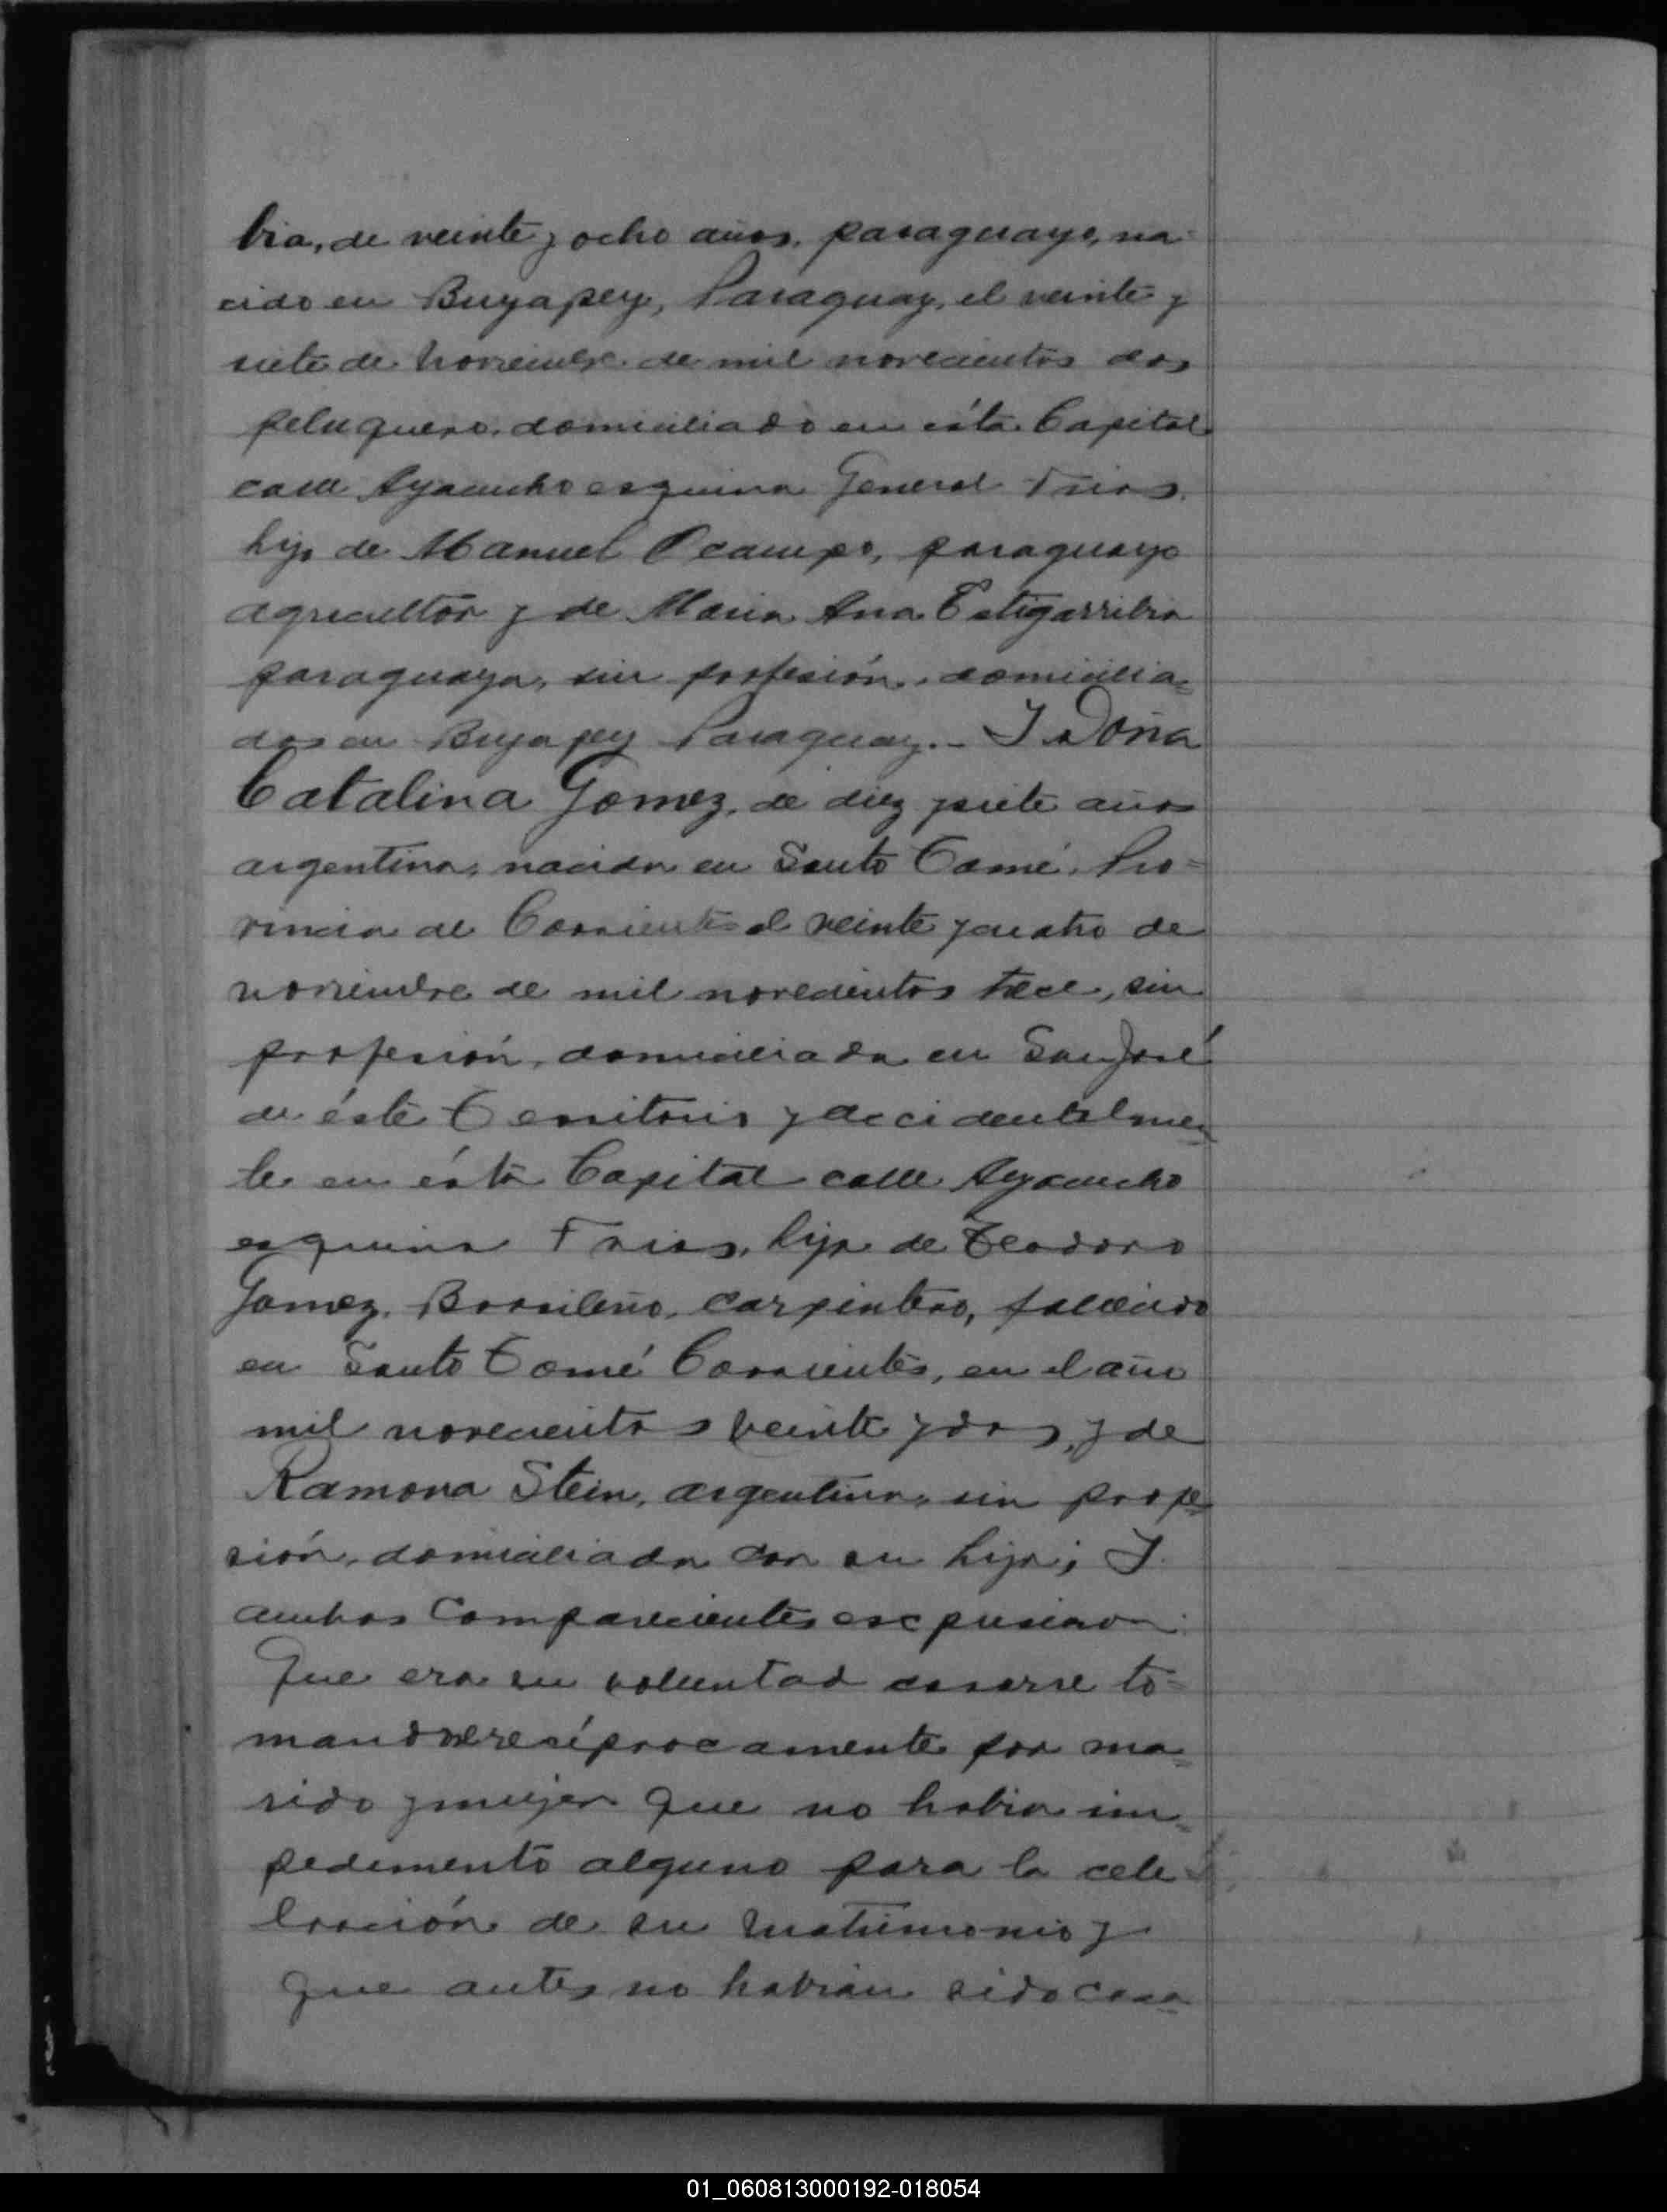 bia, de veinte y ocho años, paraguayo, na-
cido en Buyapey, Paraguay, el veinte y
siete de Noviembre de mil novecientos dos
peluquero, domiciliado en ésta Capital
calle Ayacucho esquina General Frias,
hijo de Manuel Ocampo, paraguayo
agricultor y de Maria Ana Estigarribia
paraguaya, sin profesión, domicilia=
dos en Buyapey Paraguay.- Y Doña
Catalina Gomez, de diez y siete años
argentina, nacida en Santo Tomé, Pro=
vincia de Corrientes el veinte y cuatro de
noviembre de mil novecientos trece, sin
profesión, domiciliada en San José
de éste Territorio y accidentalmen
te en ésta Capital calle Ayacucho
esquina Frias, hija de Teodoro
Gomez, Brasileño, carpintero, fallecido
en Santo Tomé Corrientes, en el año
mil novecientos veinte y dos, y de
Ramona Stein, argentina, sin profe=
sión, domiciliada con su hija; Y
ambos Comparecientes expusieron:
Que era su voluntad casarse to=
mandose recíprocamente por ma=
rido y mujer que no habia im=
pedimento alguno para la cele=
bración de su matrimonio y
que antes no habian sido casa=
01_060813000192-018054